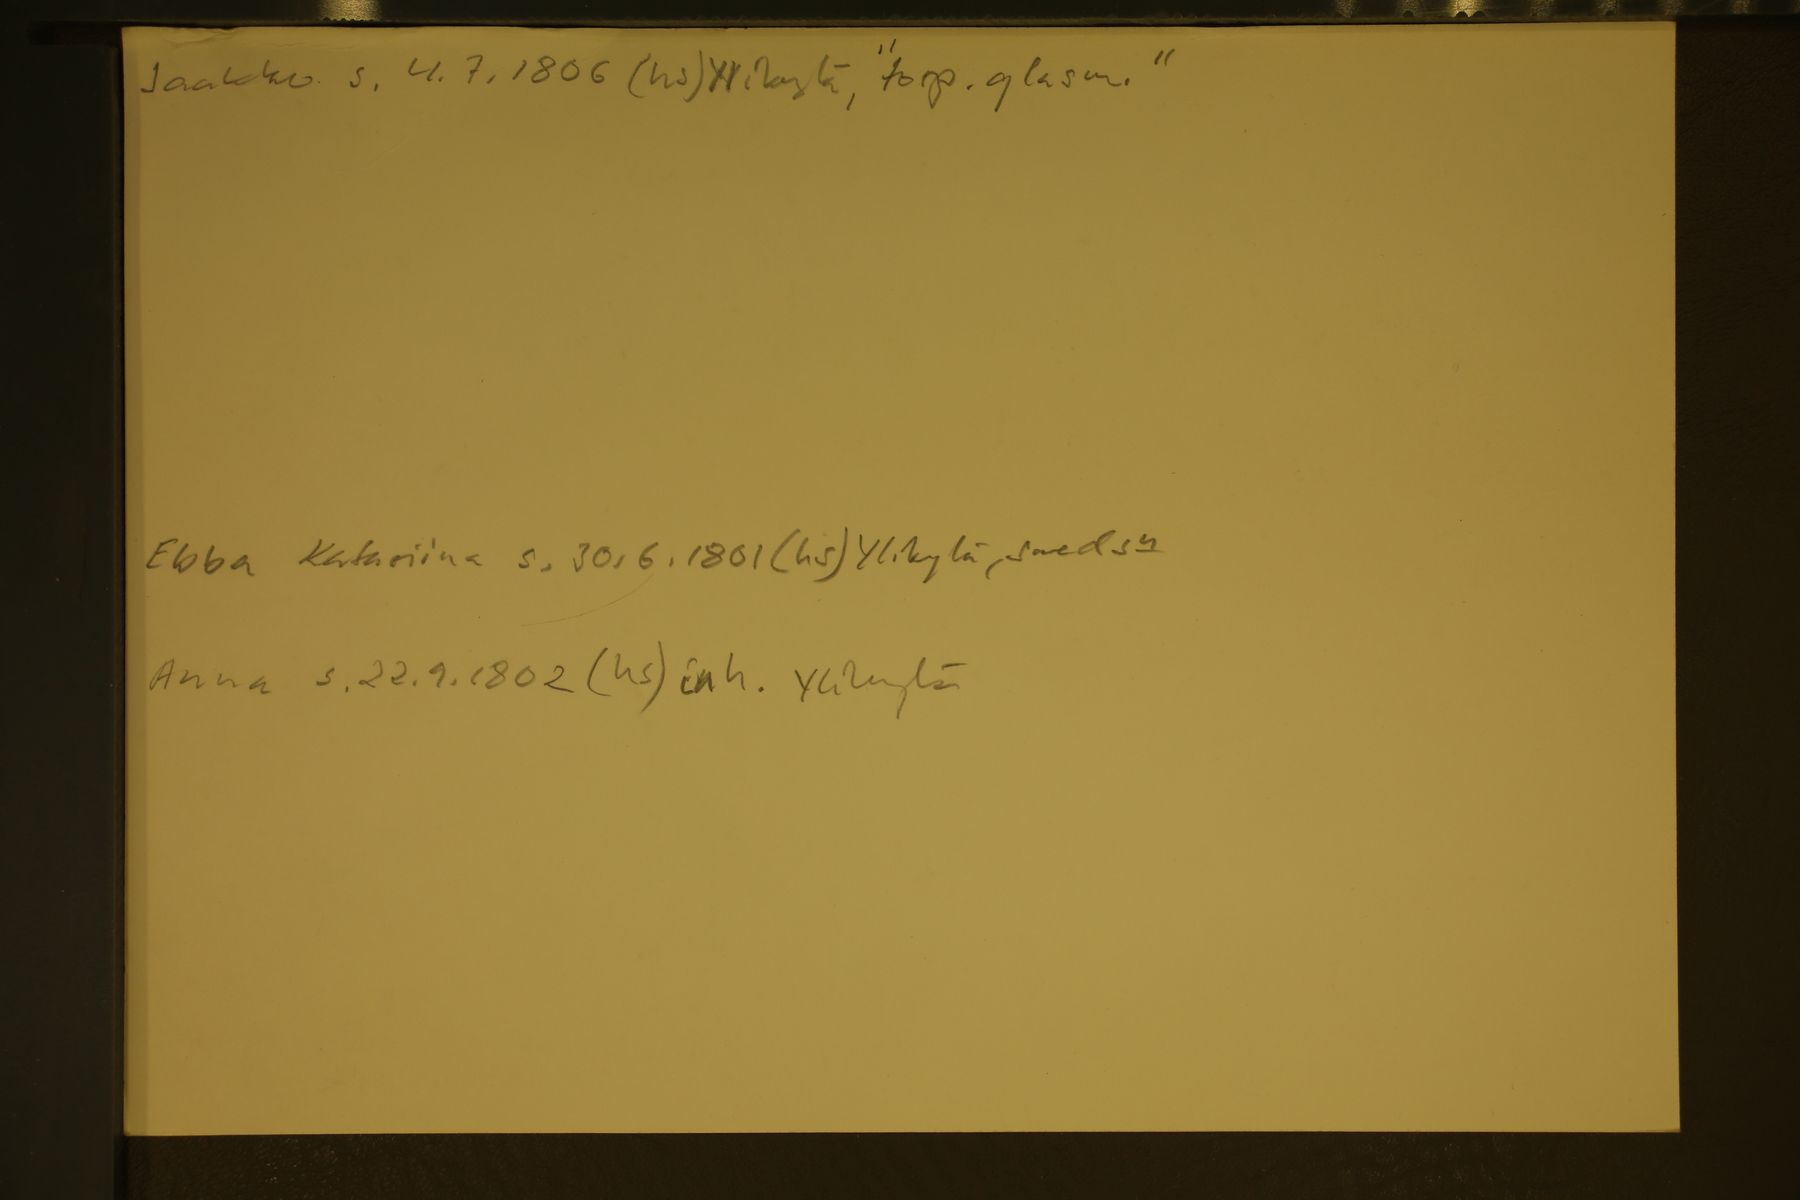 Jaakko s. 4.7.1806 (hs) Ylikylä, "torp. glasm."
Ebba Katariina s. 30.6.1801 (hs) Ylikylä, smedsn
Anna s. 22.9.1802 (hs) inh. Ylikylä